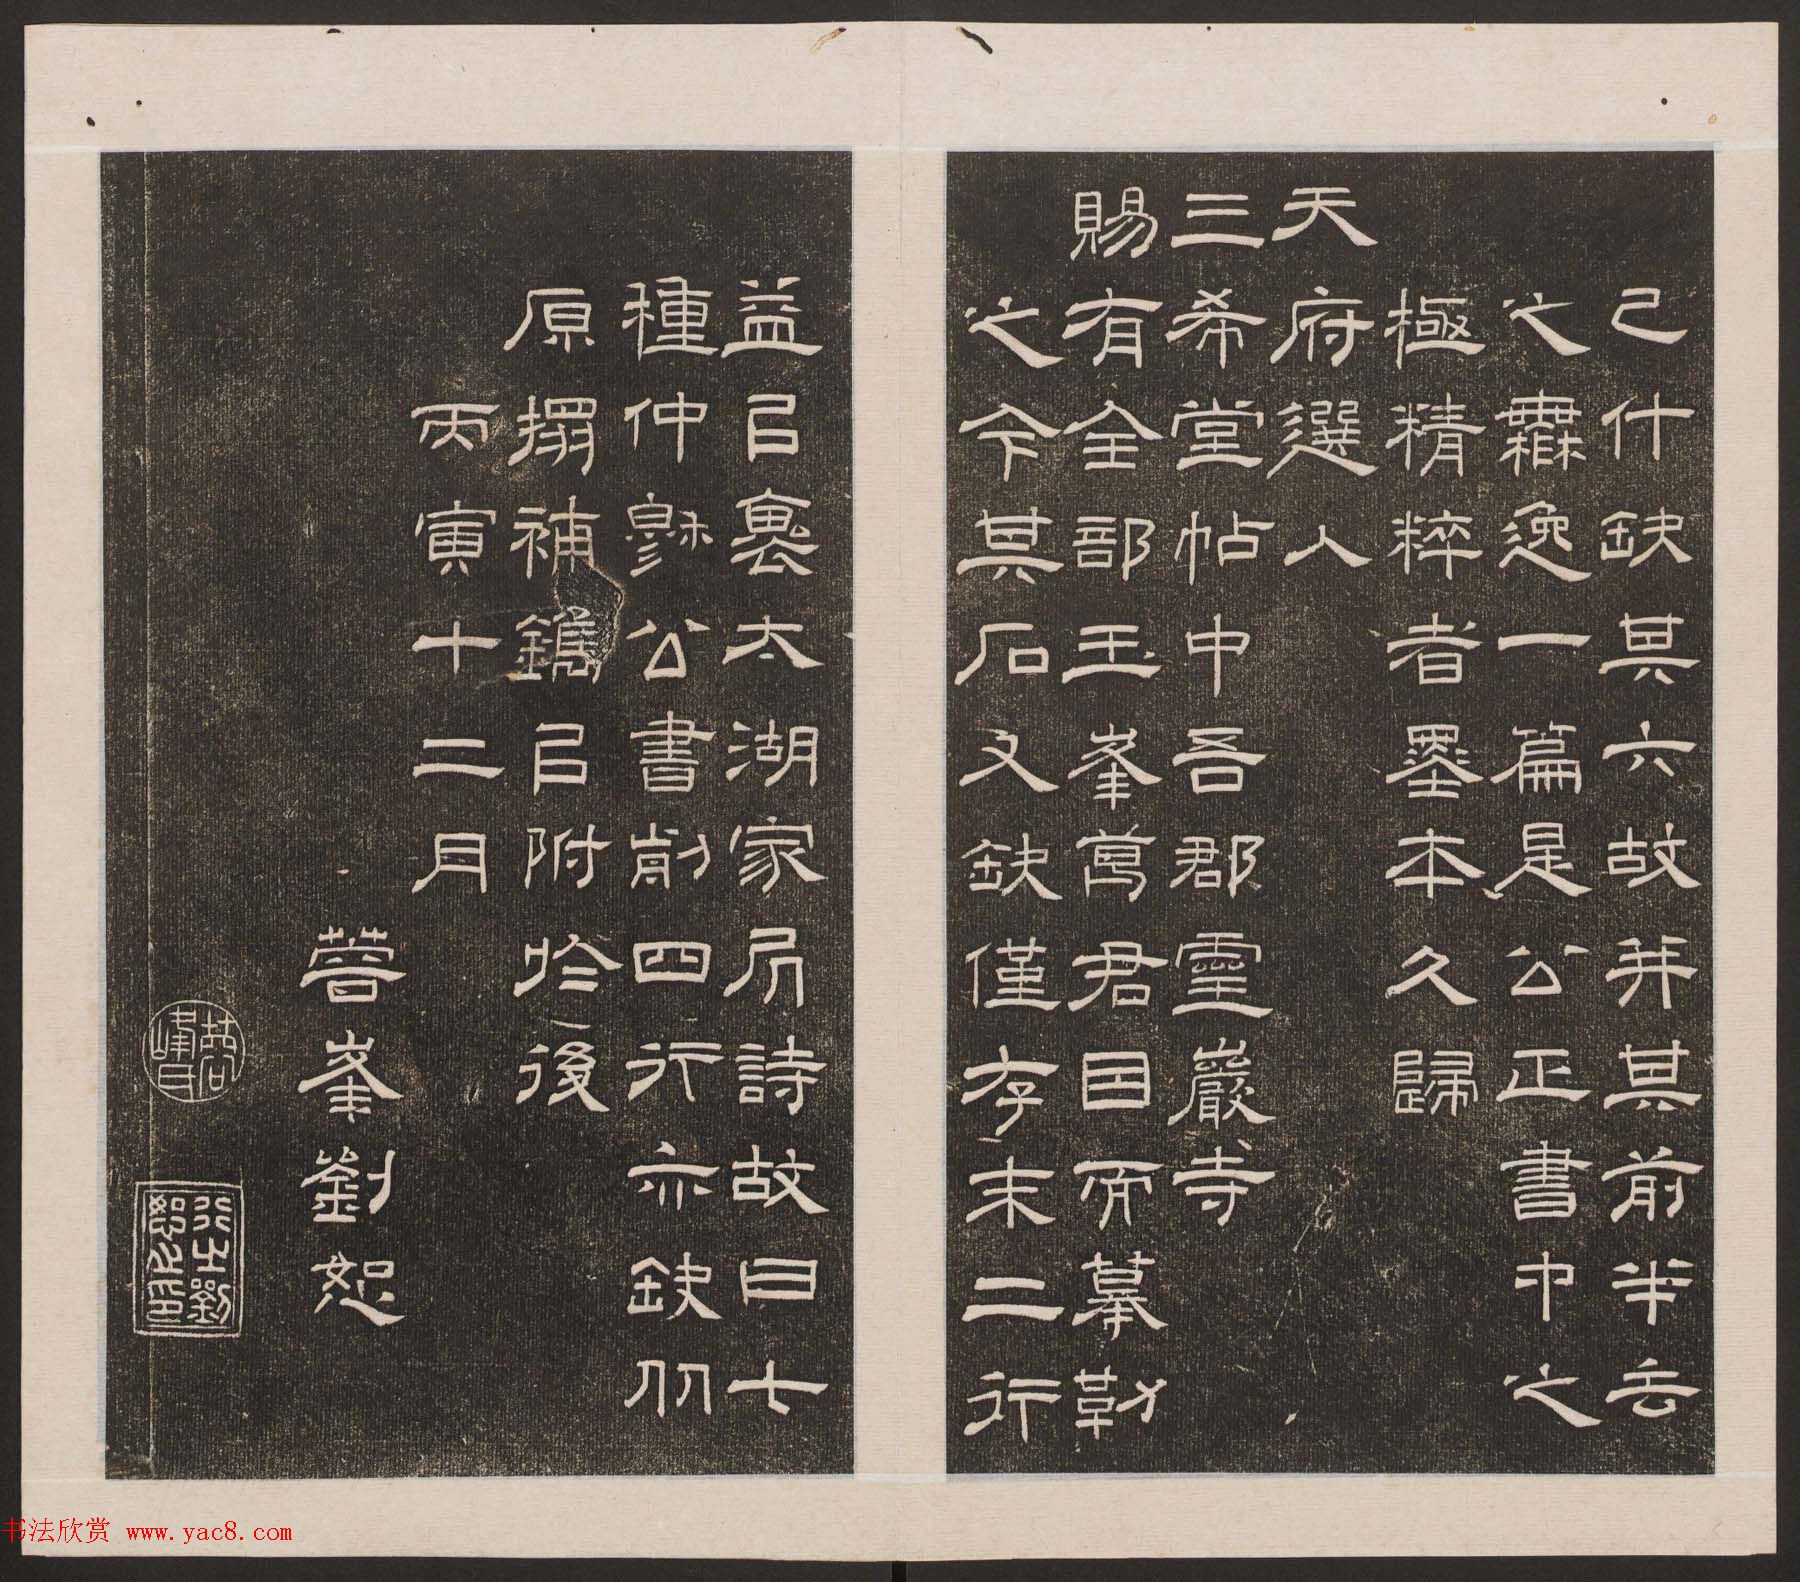 已什缺其六故并其前半去
之無逸一篇是公正書中之
極精粹者墨本久歸
天府選入
三希堂帖中吾郡靈巖寺
賜有全部玉峯萬君因而摹勒
之今其石又缺僅存末二行
益㠯裏太湖家凥詩故曰七
種仲穆公書前四行亦缺仍
原搨補鐫㠯附於後
丙寅十二月
蓉峯劉恕
书法欣赏 www.yac8.com